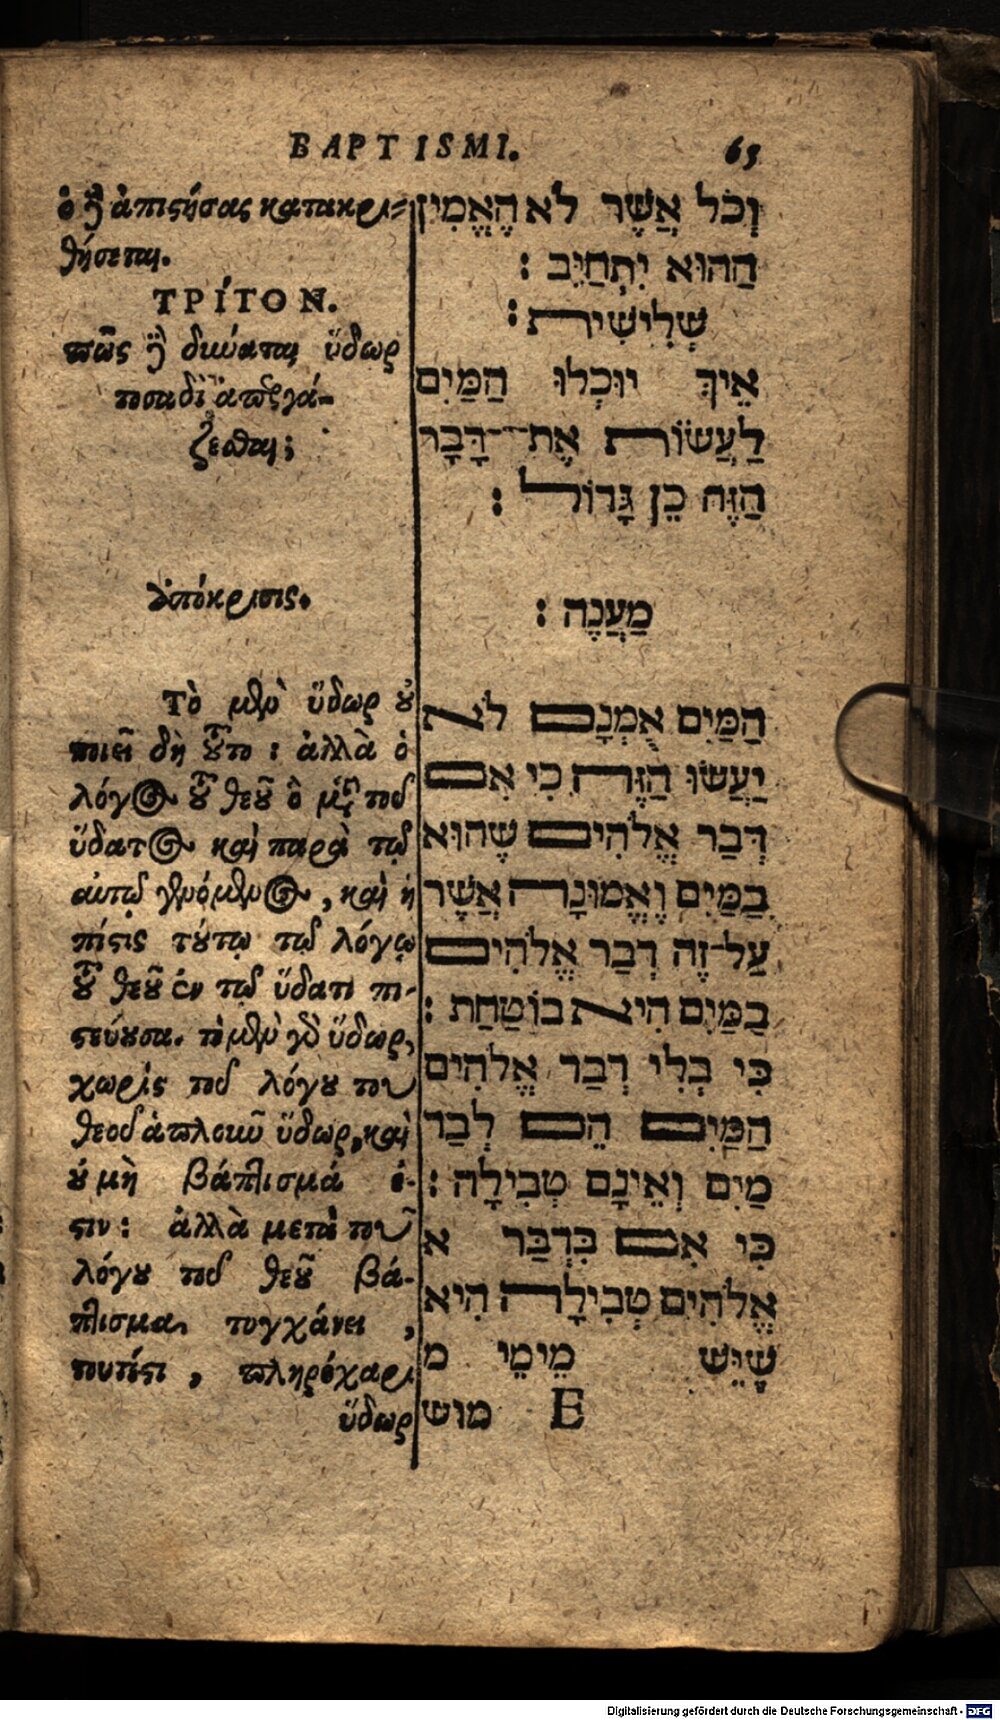 BAPTISMI. 65
ὁ δὲ ἀπιστήσας κατακρι-
θήσεται.
ΤΡΊΤΟΝ.
πῶς δὲ δύναται ὕδωρ
τοσαδὶ ἀπεργά-
ζεσθαι;
ἀπόκρισις.
Τὸ μὲν ὕδωρ οὐ
ποιεῖ δὴ τοῦτο : ἀλλὰ ὁ
λόγος τοῦ θεοῦ ὃ μετὰ τοῦ
ὕδατος καὶ παρὰ τῷ
αὐτῷ γενόμενος, καὶ ἡ
πίστις τούτῳ τῷ λόγῳ
τοῦ θεοῦ ἐν τῷ ὕδατι πι-
στεύουσα. τὸ μὲν γὰρ ὕδωρ,
χωρὶς τοῦ λόγου τοῦ
θεοῦ ἁπλοικοῦ ὕδωρ, καὶ
οὐ μὴ βάπτισμά ἐ-
στιν : ἀλλὰ μετὰ τοῦ
λόγου τοῦ θεοῦ βά-
πτισμα τυγχάνει ,
τουτέστι , πληρόχαρι
ὕδωρ
וְכֹל אֲשֶׁר לֹא הֶאֱמִין
הַהוּא יִתְחַיֵּב :
שְׁלִישִׁית :
אֵיךְ יוּכְלוּ הַמַּיִם
לַעֲשׂוֹת אֶת־דָּבָר
הַזֶּה כֵן גָּדוֹל :
מַעֲנֶה :
הַמַּיִם אֻמְנָם לֹא
יַעֲשׂוּ הַזֶּה כִּי אִם
דְּבַר אֱלֹהִים שֶׁהוּא
בַמַּיִם וֶאֱמוּנָה אֲשֶׁר
עַל־זֶה דְבַר אֱלֹהִים
בַּמַּיִם הִיא בוֹטַחַת :
כִּי בְלִי דְבַר אֱלֹהִים
הַמַּיִם הֵם לְבַד
מַיִם וְאֵינָם טְבִילָה :
כִּי אִם בִּדְבַר א
אֱלֹהִים טְבִילָה הִיא
שֶׁיֵּשׁ מֵימֵי מ
E מוש
Digitalisierung gefördert durch die Deutsche Forschungsgemeinschaft - DFG